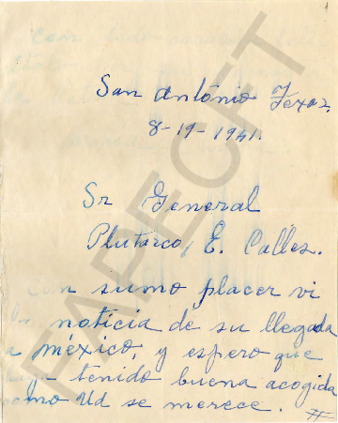 San António Texas.
8-19-1941.
Sr General
Plutarco, E. Calles.
Con sumo placer vi
la noticia de su llegada
a méxico, y espero que
tenido buena acogida
como Ud se merece.
PAPECFT